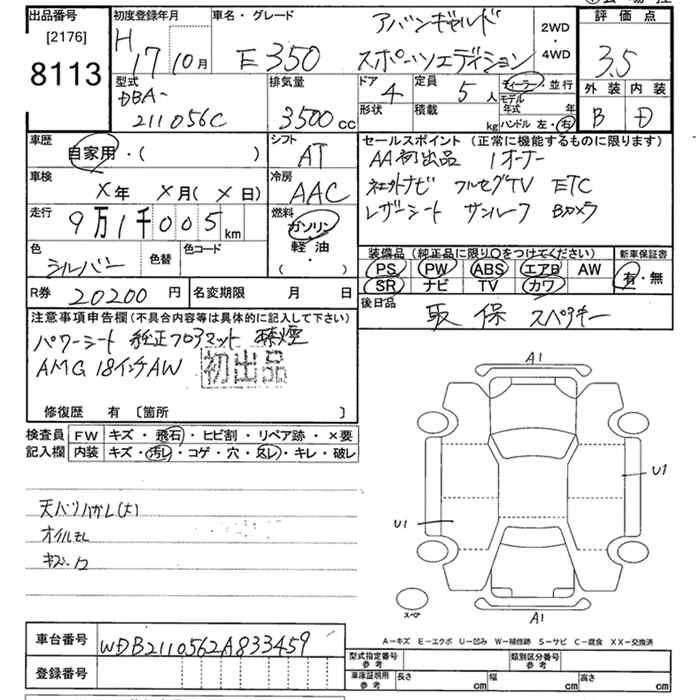 出品番号
[2176]
8113
初度登録年月
H 17 10月
車名・グレード
E 350
アバンギャルド
スポーツエディション
2WD
・
4WD
評価点
3.5
外装 内装
B D
型式
DBA-
211056C
排気量
3500cc
ドア 4
形状
定員 5人
積載 kg
ディーラー・並行
モデル年式 年
ハンドル 左・右
車歴
自家用・( )
シフト
AT
車検
X年 X月(X日)
冷房
AAC
走行
9万1千005km
燃料
ガソリン
軽・油
( )
色
シルバー
色替
色コード
R券 20200円
名変期限 月 日
セールスポイント(正常に機能するものに限ります)
AA初出品 1オーナー
社外ナビ フルセグTV ETC
レザーシート サンルーフ Bカメラ
装備品(純正品に限り○をつけてください)
PS PW ABS エアB AW
SR ナビ TV カワ
新車保証書
有・無
後日品
取 保 スペアキー
注意事項申告欄(不具合内容等は具体的に記入して下さい)
パワーシート 純正フロアマット 禁煙
AMG 18インチAW
初出品
修復歴 有 〔箇所 〕
検査員
記入欄
FW キズ・飛石・ヒビ割・リペア跡・×要
内装 キズ・汚レ・コゲ・穴・スレ・キレ・破レ
天バリハガレ(大)
オイルモレ
A1
U1
U1
スペア
A1
A−キズ E−エクボ U−凹み W−補修跡 S−サビ C−腐食 XX−交換済
車台番号 WDB2110562A833459
登録番号
型式指定番号
参考
類別区分番号
参考
車庫証明用
参考
長さ cm 幅 cm 高さ cm